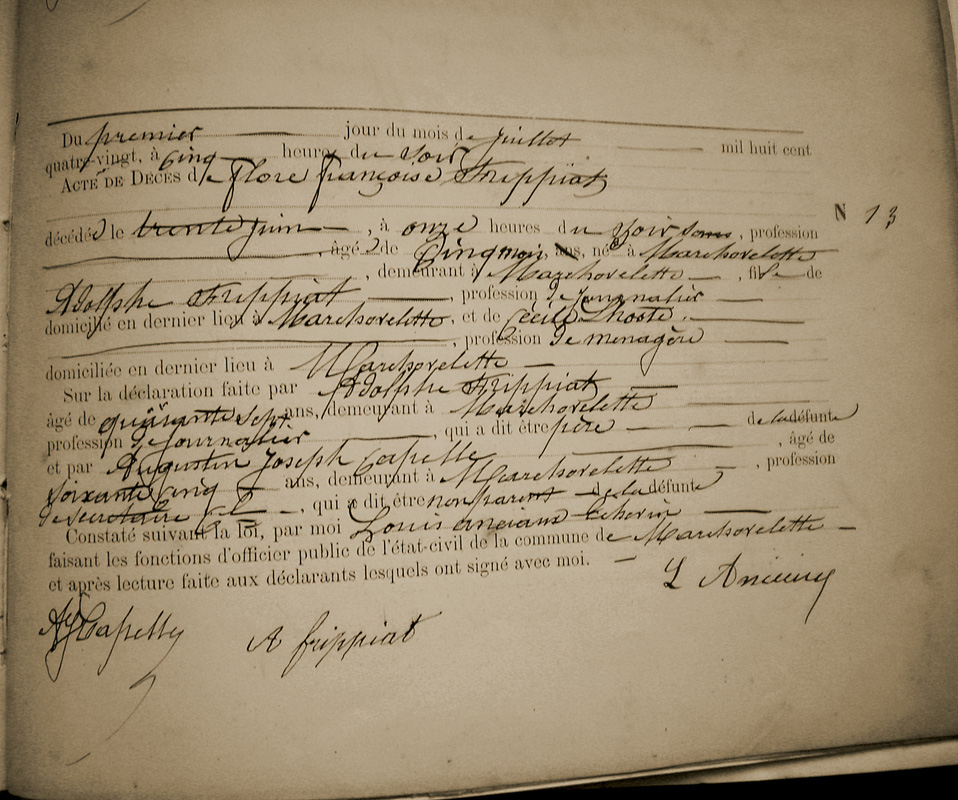 Du premier jour du mois de juillet mil huit cent
quatre-vingt, à cinq heures du soir
ACTE DE DÉCÈS de Flore françoise Frippiat
N 13
décédée le trente juin, à onze heures du soir sans, profession
, âgée de Cinq mois, ans, née à Marchovelette
, demeurant à Marchovelette, fille de
Adolphe Frippiat, profession de journalier
domicilié en dernier lieu à Marchovelette, et de Cécile Lhoste,
, profession de menagère
domiciliée en dernier lieu à Marchovelette
Sur la déclaration faite par Adolphe Frippiat
âgé de quarante sept ans, demeurant à Marchovelette
profession de journalier, qui a dit être père de la défunte
et par Augustin Joseph Capelle, âgé de
soixante cinq ans, demeurant à Marchovelette, profession
de secrétaire, qui a dit être non parent de la défunte
Constaté suivant la loi, par moi Louis anciaux
faisant les fonctions d'officier public de l'état-civil de la commune de Marchovelette
et après lecture faite aux déclarants lesquels ont signé avec moi.
L Anciaux
AJ Capelle A frippiat